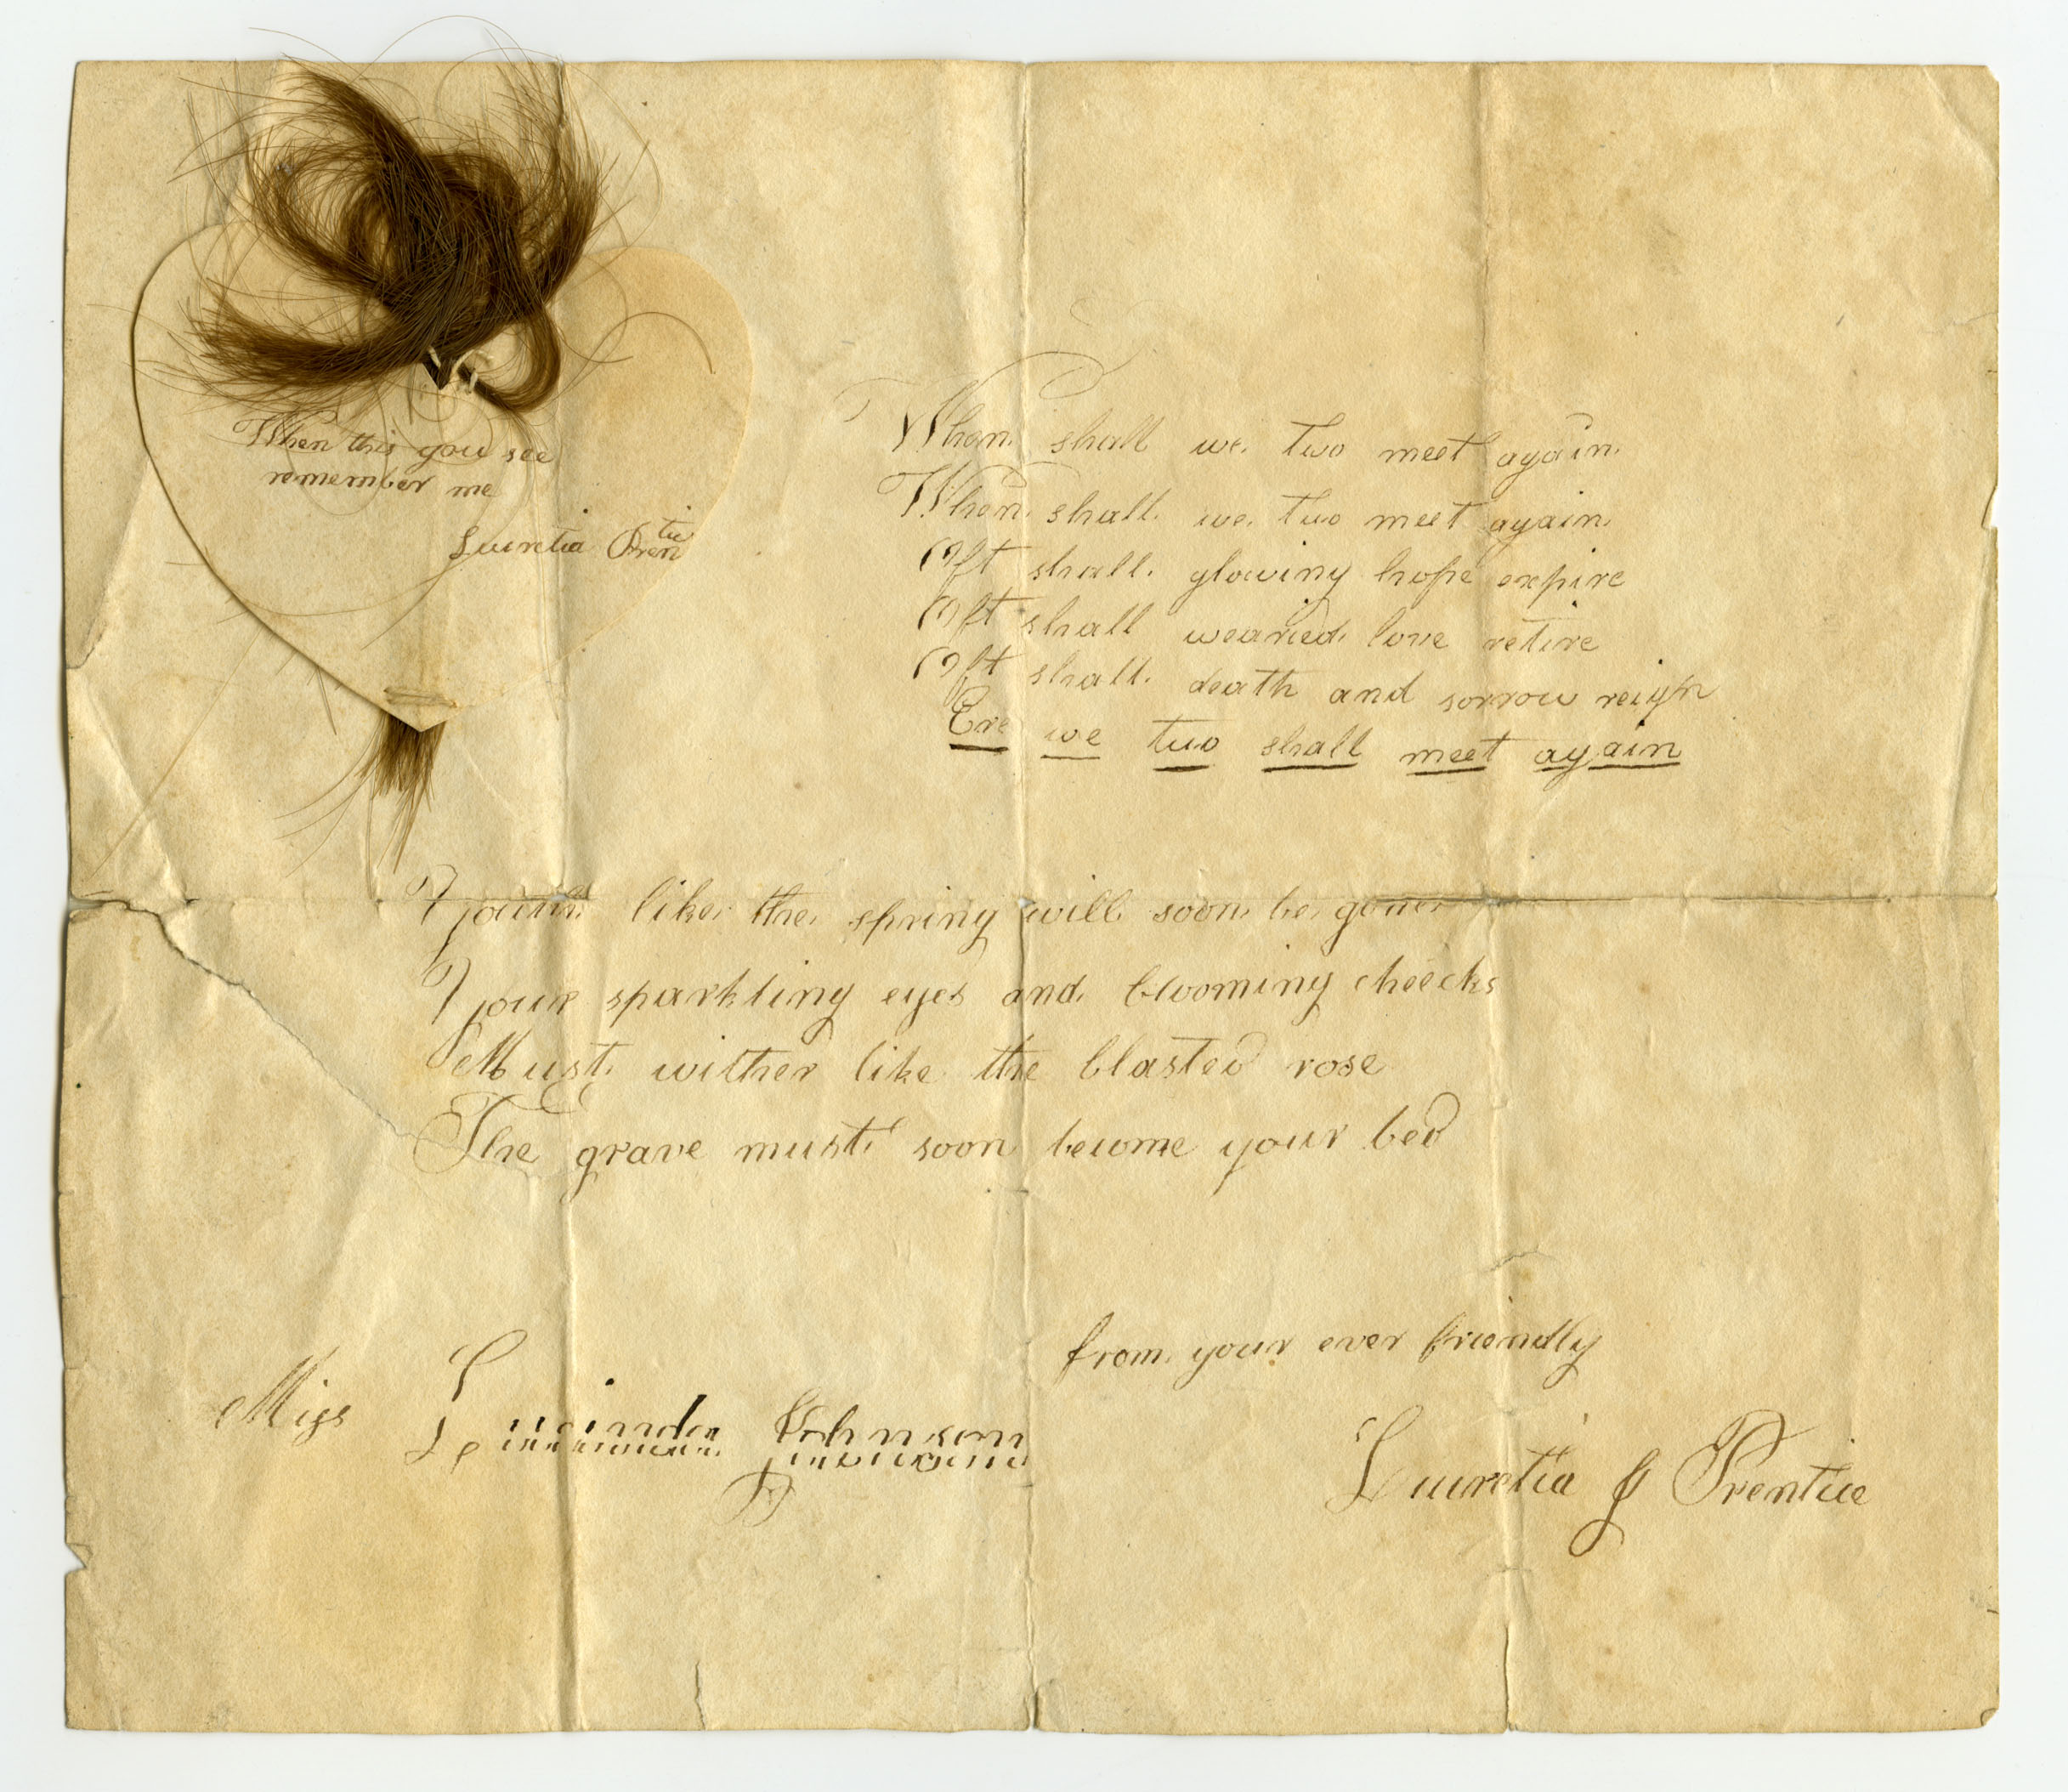 When this you see
remember me
Lucretia Prentic
When shall we two meet again
When shall we two meet again
Oft shall glowing hope expire
Oft shall wearied love retire
Oft shall death and sorrow reign
Ere we two shall meet again
like the spring will soon be gone
Your sparkling eyes and blooming cheecks
Must wither like the blasted rose
The grave must soon become your bed
from your ever friendly
Miss Lucinda Johnson
Lucretia J Prentice